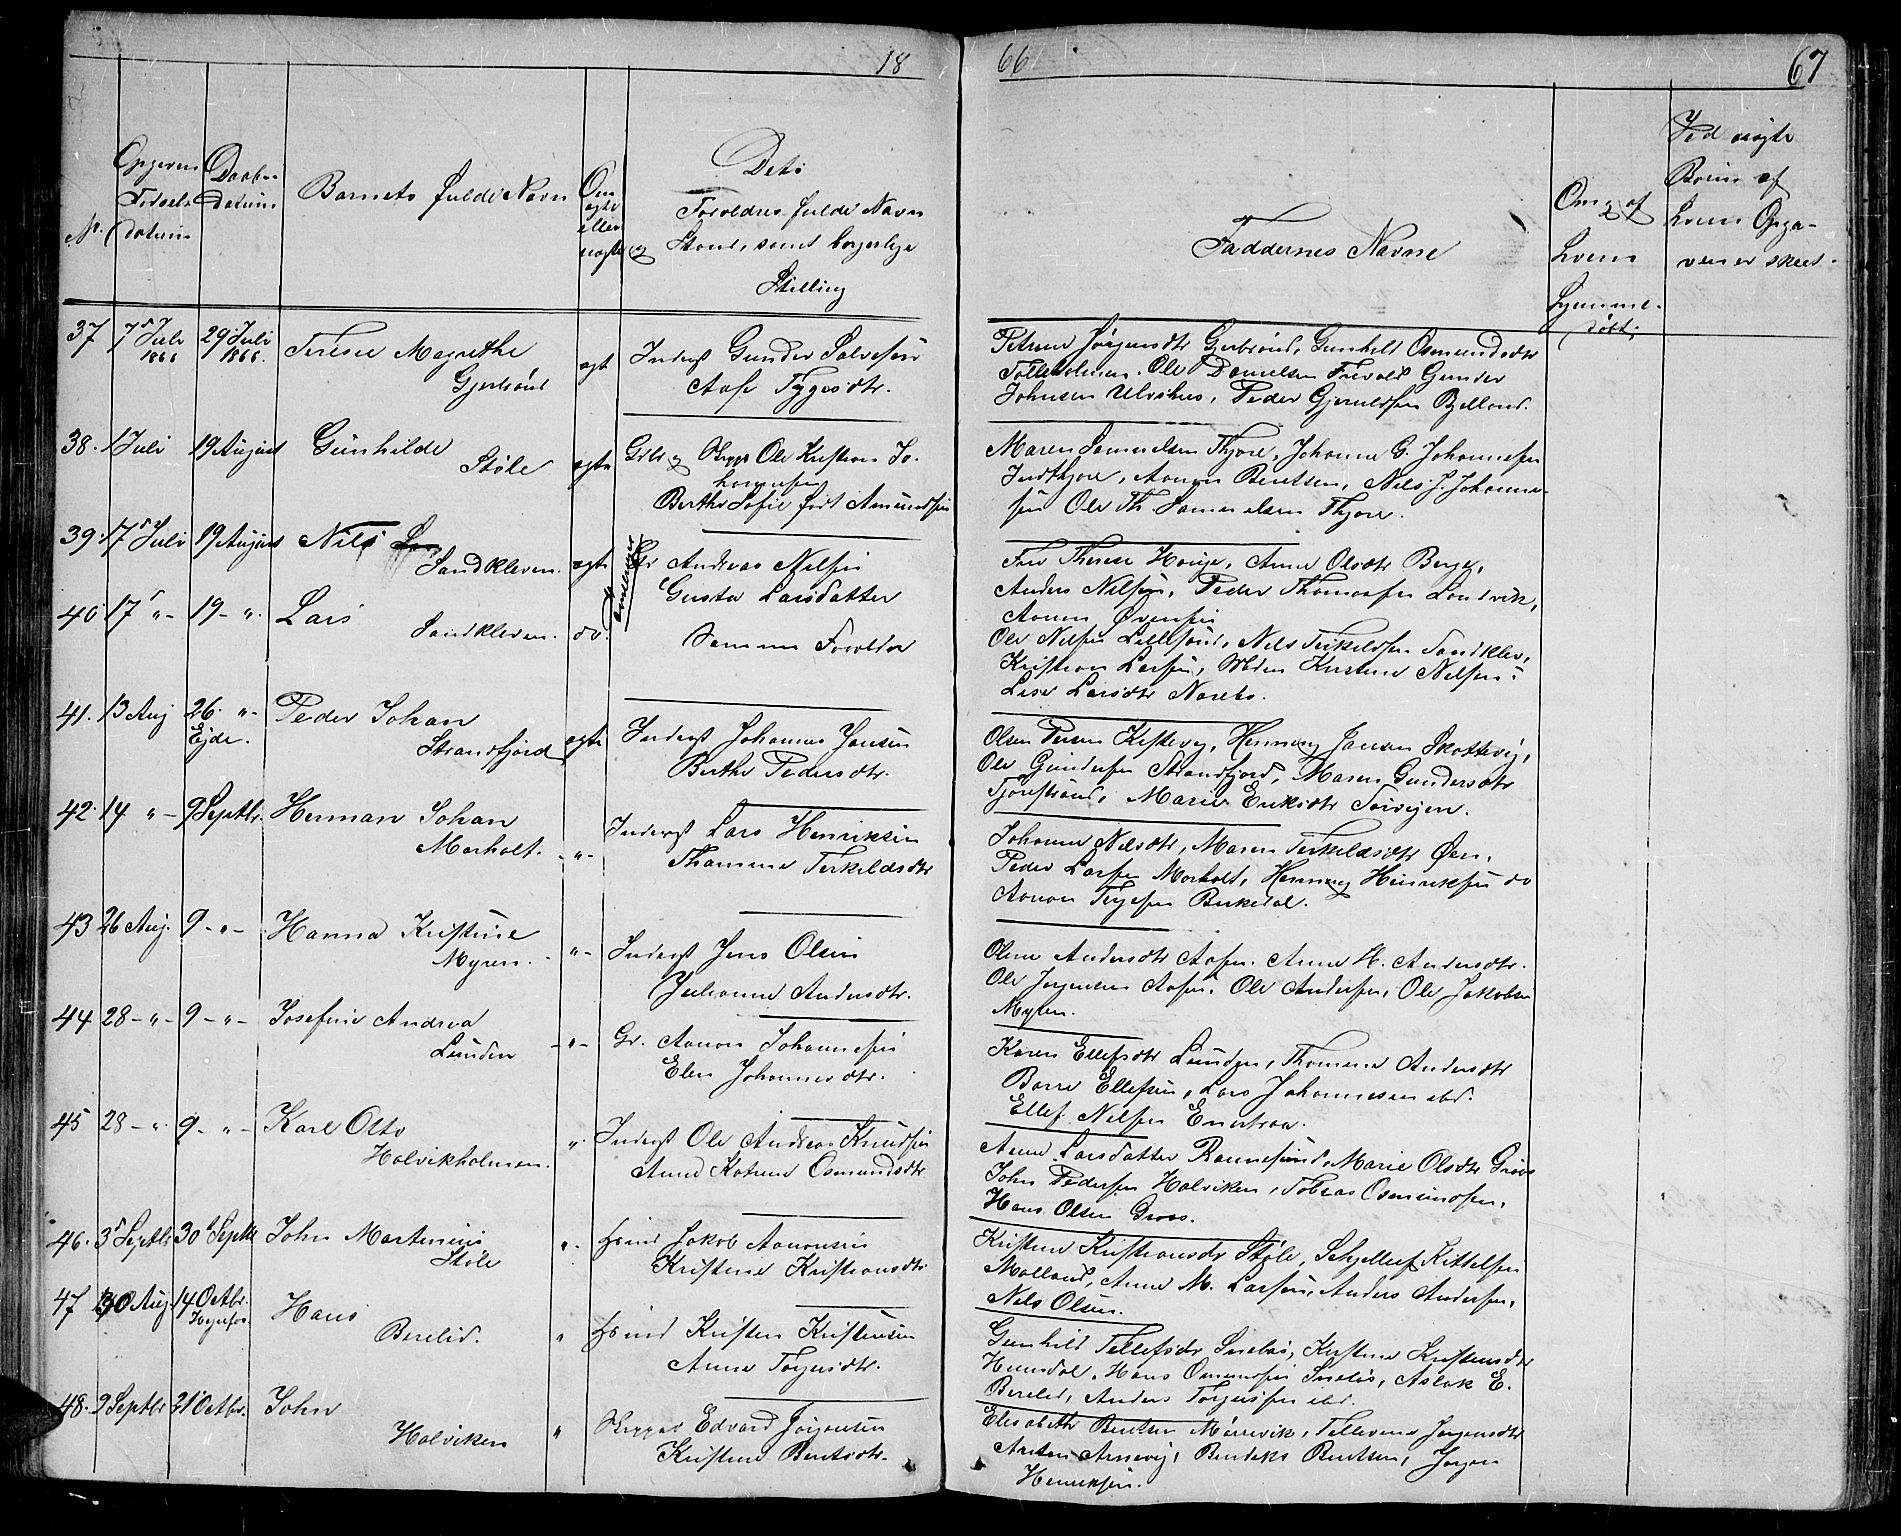 18
66
67
No.
Opgivens
Fødsels
datum
Daabs-
datum
Barnets fulde Navn
Om
ægte
eller
uægte
Dets
Forældres fulde Navn
og Stand, samt borgerlige
Stilling
Faddernes Navne
Om og af
hvem
hjemme-
døbt
Ved uægte
Børn af
hvem Opga-
ven er skeet.
37 7de Juli 1866 29 Juli 1866. Terese Magrethe
Gjerbrønd
ægt
Inderst Gunder Salvesen
Aase Tygesdtr.
Petrine Jørgensdtr Gjerbrønd, Gunhild Osmundsdtr
Tolleholmen. Ole Danielsen Trevold Gunder
Johnsen Ulvshus, Peder Gjeruldsen Bjelland.
38. 1 Juli 19 August Gunhilde
Støle
ægte
Ole Kristian Jo-
hannesen
Berthe Sofie født Amundsen
Maren Samuelsen Thjore, Johanne G. Johannesen
Indthjore, Aanon Bentsen, Nils J. Johanne-
sen Ole Th. Samuelsen Thjore.
39. 17de Juli 19 August Nils
Sandkleven.
ægte
Tvillinger
Gr Andreas Nilsen
Gusta Larsdatter
Fru Therese Hauge, Anne Olsdtr Berge,
Anders Nilsen, Peder Thomassen Landvik,
Aanon Evensen
40 17 " - 19 - ". Lars
Sandkleven.
do.
Samme Forældre
Ole Nilsen Lillesand, Nils Terkeldsen Sandklev,
Kristian Larsen, Kirstine Nilsen
Lise Larsdtr Narebo.
41. 13 Aug 26. " -
Ejde.
Peder Johan
Strandfjord
ægte
Inderst Johannes Jansen
Berthe Pedersdtr.
Olsen Kestevig, Henning Jansen Skottevig,
Ole Gundersen Strandfjord, Maren Gundersdtr
Tjorestrand, Marie Eriksdtr
42. 14 " - 9 Septbr. Herman Johan
Morholt.
- " -
Inderst Lars Henriksen
Thomine Terkildsdtr
Johanne Nilsdtr, Maren Terkeldsdtr Øen,
Peder Larsen Morholt, Henning Henriksen do
Aanon Terjesen Birkedal.
43 26 Aug. 9 - " - Hanna Kristine
Myren.
- " -
Inderst Jens Olsen
Julianne Andersdtr.
Olene Andersdtr Aasen. Anne H. Andersdtr.
Ole Jorgensen Aasen. Ole Andersen, Ole Jakobsen
Myren.
44 28 - " - 9 - " - Josefine Andrea
Lunden
- " -
Gr. Aanon Johannesen
Elen Johannesdtr.
Karen Ellefsdtr Lunden, Thomine Andersdtr
Barre Ellefsen, Lars Johannesen ibd.
Ellef Nilsen Enertraa.
45 28 - ". 9 - " - Karl Otto
Holvikholmen.
".
Inderst Ole Andreas Knudsen
Anne Katrine Osmundsdtr
Anne Larsdatter Rannesund, Marie Olsdtr Groos
John Pedersen Holviken, Tobias Osmundsen,
Hans Olsen Groos.
46. 3de Septbr 30 Septbr John Martinius
Støle
".
Hsmd Jakob Aanonsen
Kristine Kristiansdtr
Kristine Kristiansdtr Støle, Kittelsen
Molland, Anne M. Larsen, Anders Andersen,
Nils Olsen.
47 30 Aug. 14 Octbr.
Hans
Berelid.
"
Hsmd Kristen Kristensen
Anne Torgersdtr.
Gunhild Tellefsdtr Snebos, Kirstine Kristensdtr
Hemdal, Hans Omundsen Snebos, Aslak E.
Berelid, Anders Torjussen ibd.
48. 2 Septbr 21 Octbr. John
Holviken
"
Skipper Edvard Jørgensen
Kristine Bentsdtr.
Elisabeth Bentsen Mørrevik, Tellevine Jorgensdtr
Anton Arnevig, Bendiks Bentsen, Jorgen
Henriksen.